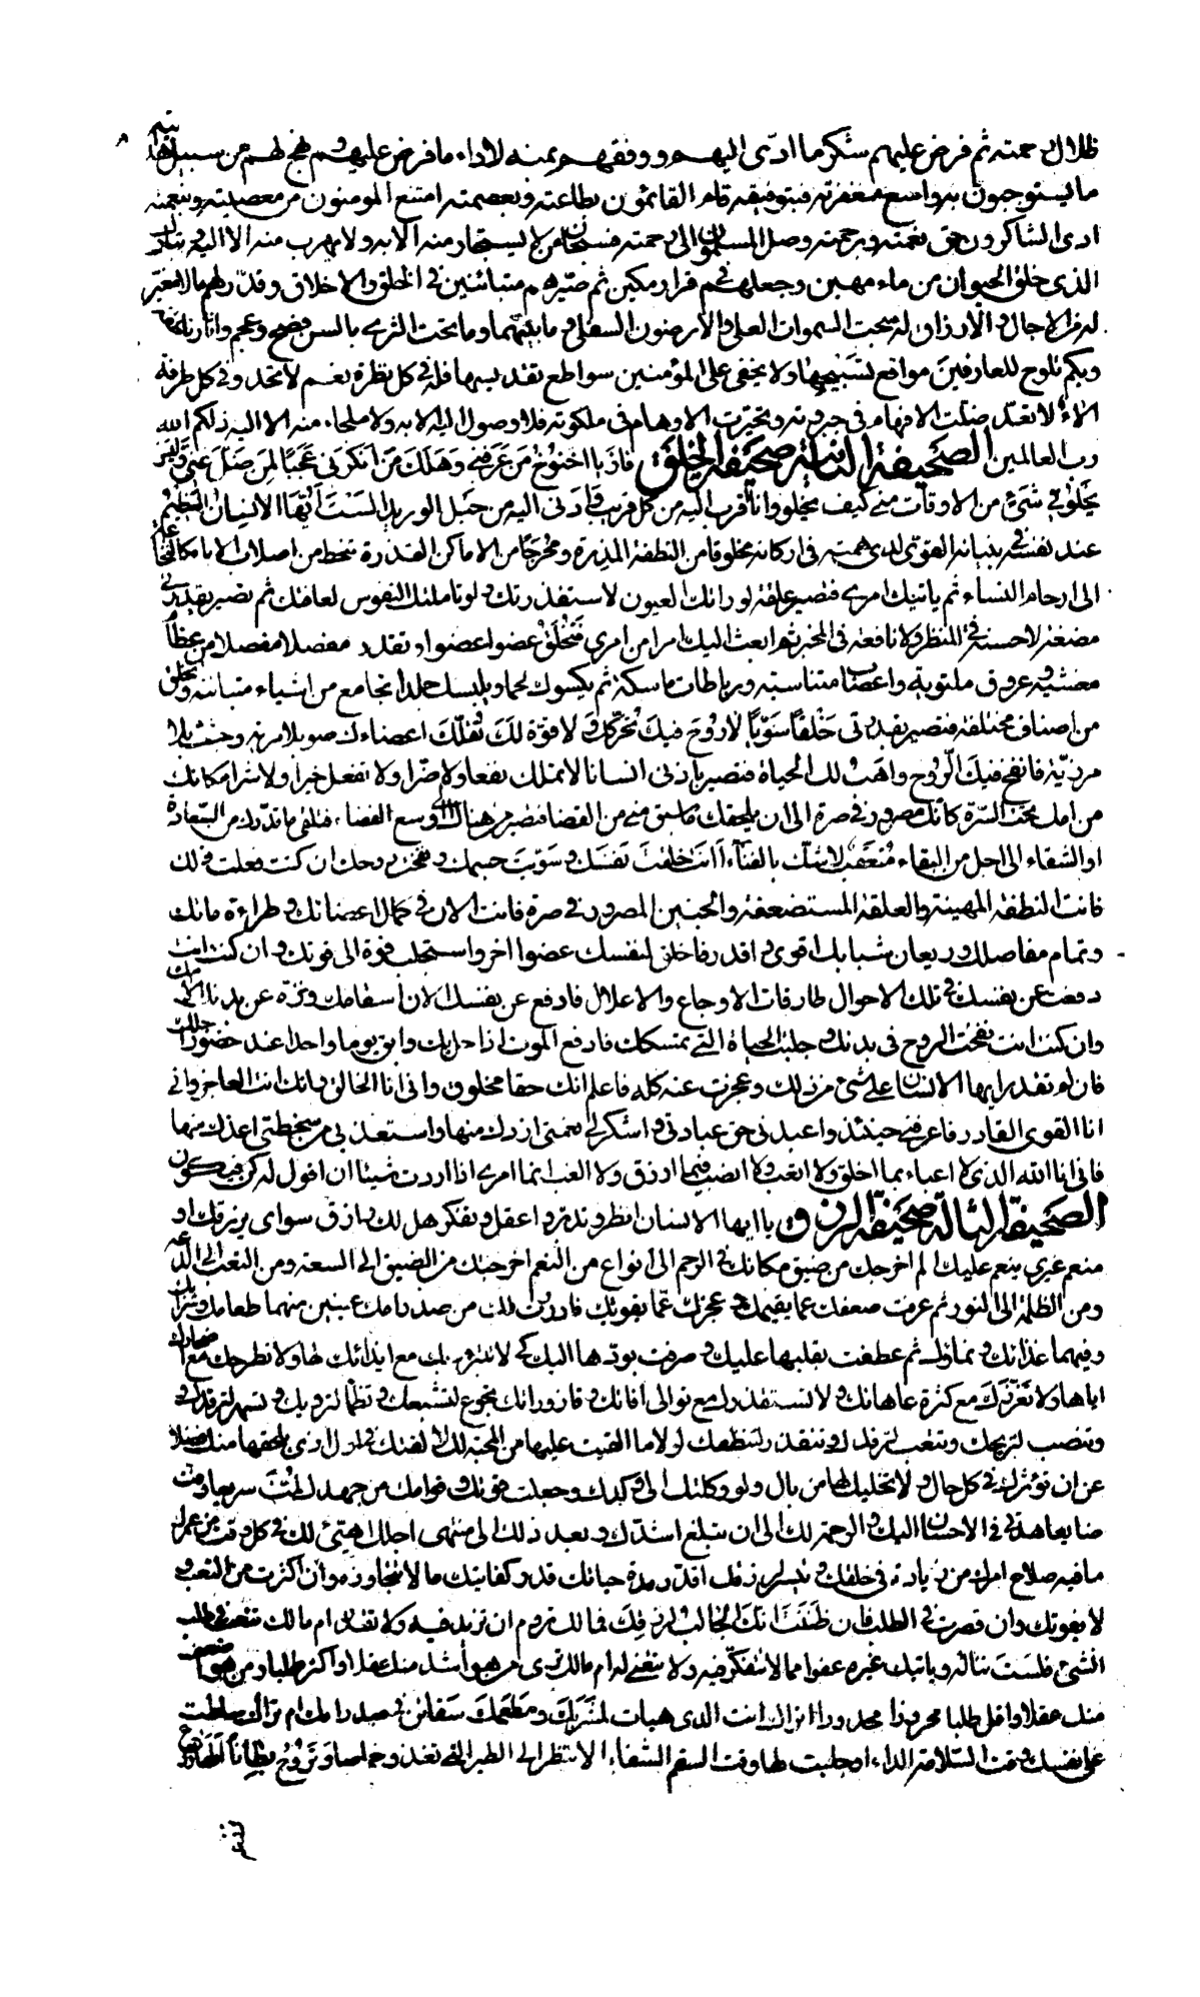 ظلال رحمته ثم فرض عليهم شكر ما ادى اليهم ووفقهم بمنه لاداء ما فرض عليهم ونهج لهم من سبيل هدايته
ما يستوجبون به واسع مغفرته فبتوفيقه قام القائمون بطاعته وبعصمته امتنع المؤمنون من معصيته وبنعمته
ادى الشاكرون حق نعمته وبرحمته وصل المسلمون الى رحمته فسبحان من لا يستجار منه الا به ولا مهرب منه الا اليه وتبارك
الذى خلق الحيوان من ماء مهين وجعلهم فى قرار مكين ثم صيرهم متباينين فى الخلق والاخلاق وقدر لهم ما لا مغير
له من الاجال والارزاق له سبحت السموات العلى والارضون السفلى وما بينهما وما تحت الثرى بالسن فصح وعجم واثار ناطقة
وبكم تلوح للعارفين مواقع تسبيحها ولا يخفى على المؤمنين سواطع تقديسها فله فى كل نظرة نعم لا تحد وفى كل طرفة
الاء لا تعد ضلت الافهام فى جبروته وتحيرت الاوهام فى ملكوته فلا وصول اليه الا به ولا ملجاء منه الا اليه ذلكم الله
رب العالمين الصحيفة الثانية صحيفة الخلق فاز يا اخنوخ من عرفنى وهلك من انكرنى عجبا لمن ضل عنى وليس
يخلو فى شئ من الاوقات منى كيف يخلو وانا اقرب اليه من كل قريب وادنى اليه من حبل الوريد الست ايها الانسان العظيم
عند نفسه فى بنيانه القوى لدى همته فى اركانه مخلوقا من النطفة المذرة ومخرجا من الاماكن القذرة تنحط من اصلاب الاباء كالنخاعة
الى ارحام النساء ثم ياتيك امرى فتصير علقة لو راتك العيون لاستقذرتك ولو تاملتك النفوس لعافتك ثم تصير بقدرتى
مضغة لا حسنة فى المنظر ولا نافعة فى المخبر ثم ابعث اليك امرا من امرى فتخلق عضوا عضوا وتقدر مفصلا مفصلا من عظام
مغشية وعروق ملتوية واعصاب متناسبة ورباطات ماسكة ثم يكسوك لحما ويلبسك جلدا تجامع من اشياء متباينة وتخلق
من اصناف مختلفة فتصير بقدرتى خلقا سويا لا روح فيك تحركك ولا قوة لك تقلك اعضاءك صور بلا مرية وجثث بلا
مرزية فانفخ فيك الروح واهب لك الحياة فتصير باذنى انسانا لا تملك نفعا ولا ضرا ولا تفعل خيرا ولا شرا مكانك
من امك تحت السرة كانك مصرور فى صرة الى ان يلحقك ما سبق منى من القضا فتصير من هناك الى وسع الفضاء فتلقى ما قدرك من السعادة
او الشقاء الى اجل من البقاء متعقب لا شك بالفناء اانت خلقت نفسك وسويت جسمك ونفخت روحك ان كنت فعلت ذلك
فانت النطفة المهينة والعلقة المستضعفة والجنين المصرور فى صرة فانت الان فى كمال اعضائك وطراءة مائك
وتمام مفاصلك وريعان شبابك اقوى واقدر فاخلق لنفسك عضوا اخر واستجلب قوة الى قوتك وان كنت انت
دفعت عن نفسك فى تلك الاحوال طارقات الاوجاع والاعلال فادفع عن نفسك الان اسقامك ونزه عن بدنك الامك
وان كنت انت نفخت الروح فى بدنك وجلبت الحياة التى تمسكك فادفع الموت اذا حل بك وابق يوما واحدا عند حضور اجلك
فان لم تقدر ايها الانسان على شئ من ذلك وعجزت عنه كله فاعلم انك حقا مخلوق وانى انا الخالق وانك انت العاجز وانى
انا القوى القادر فاعرفنى حينئذ واعبدنى حق عبادتى واشكر لى نعمتى ازدك منها واستعذ بى من سخطتى اعذك منها
فانى انا الله الذى لا اعباء بما اخلق ولا اتعب ولا انصب فيما ارزق ولا الغب انما امرى اذا اردت شيئا ان اقول له كن فيكون
الصحيفة الثالثة صحيفة الرزق يا ايها الانسان انظر وتدبر واعقل وتفكر هل لك رازق سواى يرزقك او
منعم غيرى ينعم عليك الم اخرجك من ضيق مكانك فى الرحم الى انواع من النعم اخرجتك من الضيق الى السعة ومن التعب الى الدعة
ومن الظلمة الى النور ثم عرفت ضعفك عما يقيمك وعجزك عما يفوتك فادررت لك من صدر امك عينين منهما طعامك وشرابك
وفيهما غذائك ونماؤك ثم عطفت بقلبها عليك وصرفت بودها اليك كى لا تتبرم بك مع ايذائك لها ولا تطرحك مع اضجارك
اياها ولا تقززك مع كثرة عاهاتك ولا تستقذرك مع توالى افاتك وقازوراتك تجوع لتشبعك وتظما لترويك وتسهر لترقدك
وتنصب لتريحك وتتعب لترفدك وتتقذر لتنظفك لولا ما القيت عليها من المحبة لك لالقتك فى اول اذى يلحقها منك فضلا
عن ان تؤثرك فى كل حال ولا تخليك لها من بال ولو وكلتك الى وكدك وجعلت قوتك وقوامك من جهدك لمت سريعا وفت
ضايعا هذه عادتى فى الاحسان اليك والرحمة لك الى ان تبلغ اشدك وبعد ذلك الى منتهى اجلك اهيئ لك فى كل وقت من عمرك
ما فيه صلاح امرك من زيادة فى خلقك وتيسير لرزقك اقدر مدة حياتك قدر كفايتك ما لا تتجاوزه وان اكثرت من التعب و
لا يفوتك وان قصرت فى الطلب فان ظننت انك الجالب لرزقك فما لك تروم ان تزيد فيه ولا تقدر ام ما لك تتعب فى طلب
الشئ فلست تناله وياتيك غيره عفوا مما لا تتفكر فيه ولا تتعنى له ام ما لك ترى من هو اشد منك عقلا واكثر طلبا ومن هو اضعف
منك عقلا واقل طلبا محروزا مجدورا اتراك انت الذى هيات لمشربك ومطعمك سقائين فى صدر امك ام تراك سلطت
على نفسك وقت السلامة الداء او جلبت لها وقت السقم الشفاء الا تنظر الى الطير التى تغدو خماصا وتروح بطانا الها زرع